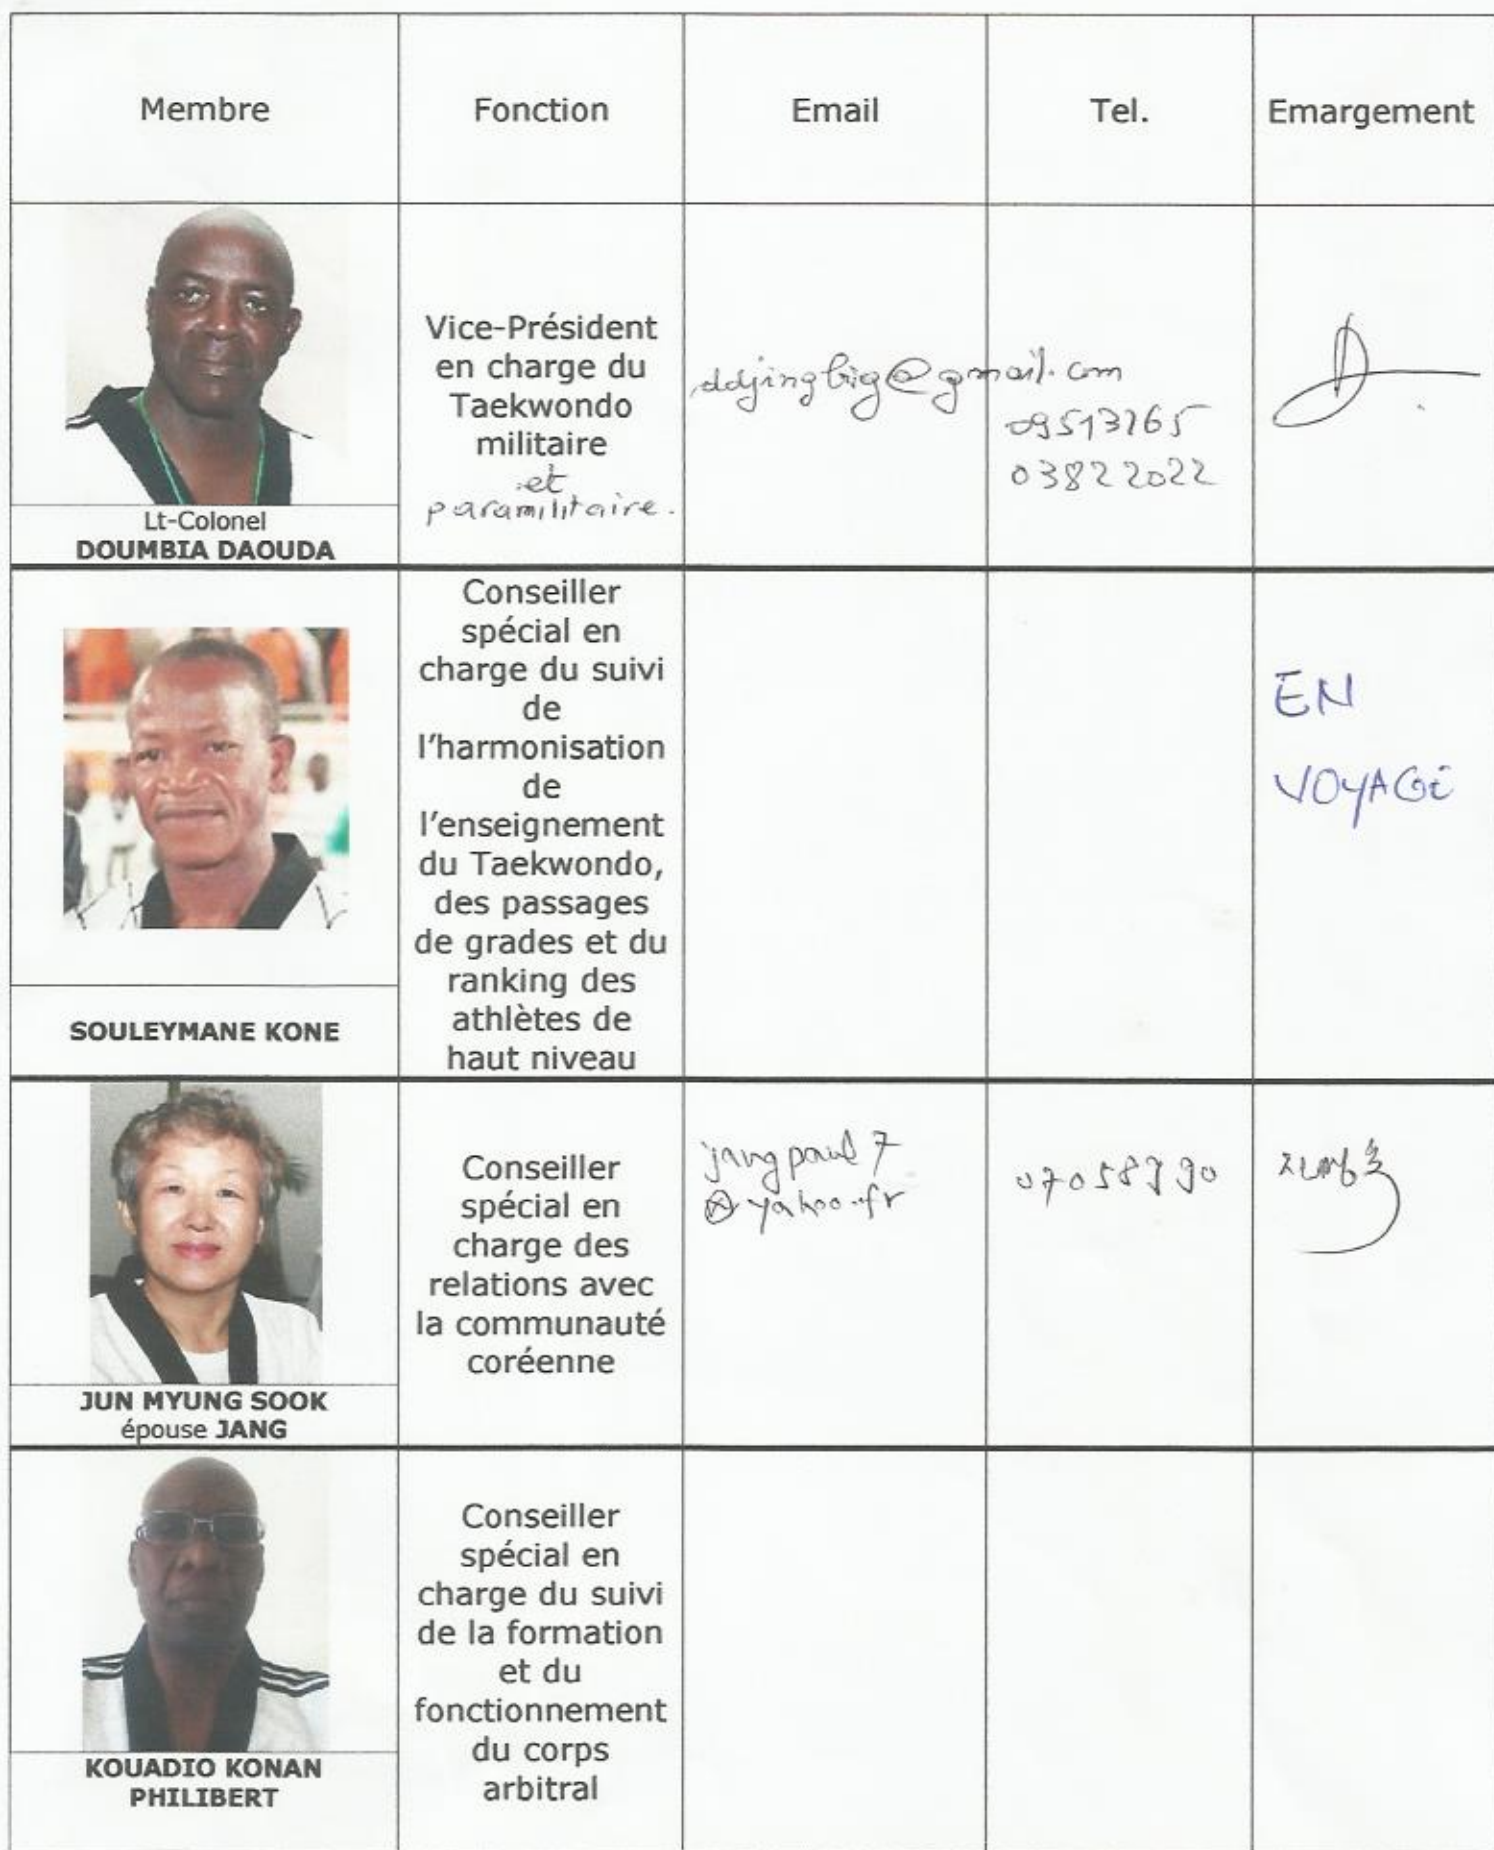 Membre
Fonction
Email
Tel.
Emargement
Lt-Colonel
DOUMBIA DAOUDA
Vice-Président
en charge du
Taekwondo
militaire
et
paramilitaire.
ddjingbig@gmail.com
09513765
03822022
SOULEYMANE KONE
Conseiller
spécial en
charge du suivi
de
l'harmonisation
de
l'enseignement
du Taekwondo,
des passages
de grades et du
ranking des
athlètes de
haut niveau
EN
VOYAGE
JUN MYUNG SOOK
épouse JANG
Conseiller
spécial en
charge des
relations avec
la communauté
coréenne
jangpaul7
@yahoo.fr
KOUADIO KONAN
PHILIBERT
Conseiller
spécial en
charge du suivi
de la formation
et du
fonctionnement
du corps
arbitral